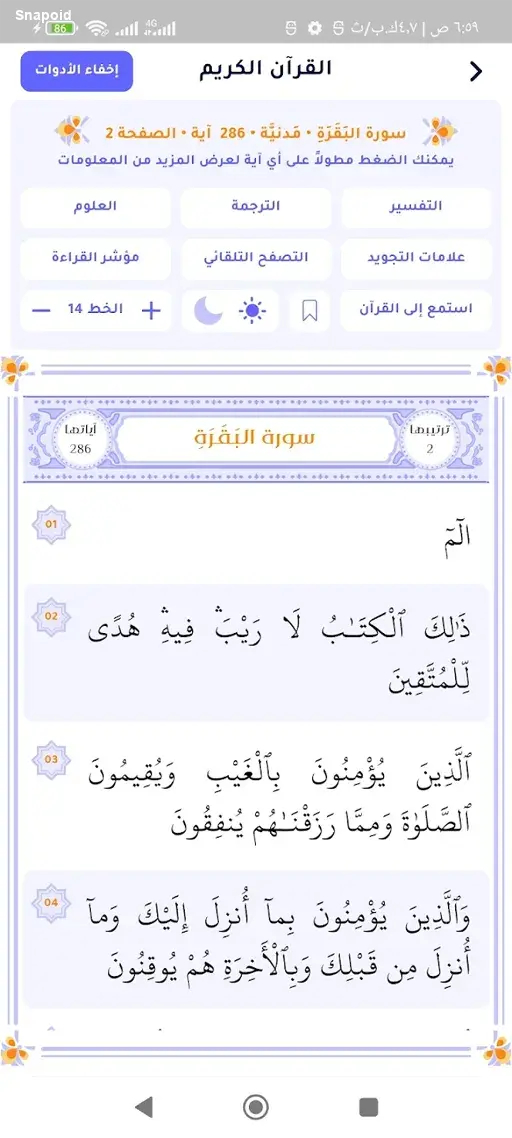 Snapoid
٦:٥٩ ص | ٤٫٧ك.ب/ث
4G
86
القرآن الكريم
إخفاء الأدوات
سورة البَقَرَةِ • مَدنيَّة • 286 آية • الصفحة 2
يمكنك الضغط مطولاً على أي آية لعرض المزيد من المعلومات
التفسير
الترجمة
العلوم
علامات التجويد
التصفح التلقائي
مؤشر القراءة
استمع إلى القرآن
+ الخط 14 −
ترتيبها
2
سورة البَقَرَةِ
آياتها
286
الٓمٓ
01
ذَٰلِكَ ٱلْكِتَـٰبُ لَا رَيْبَ ۛ فِيهِ ۛ هُدًى
02
لِّلْمُتَّقِينَ
ٱلَّذِينَ يُؤْمِنُونَ بِٱلْغَيْبِ وَيُقِيمُونَ
03
ٱلصَّلَوٰةَ وَمِمَّا رَزَقْنَـٰهُمْ يُنفِقُونَ
وَٱلَّذِينَ يُؤْمِنُونَ بِمآ أُنزِلَ إِلَيْكَ وَمآ
04
أُنزِلَ مِن قَبْلِكَ وَبِٱلْأَخِرَةِ هُمْ يُوقِنُونَ